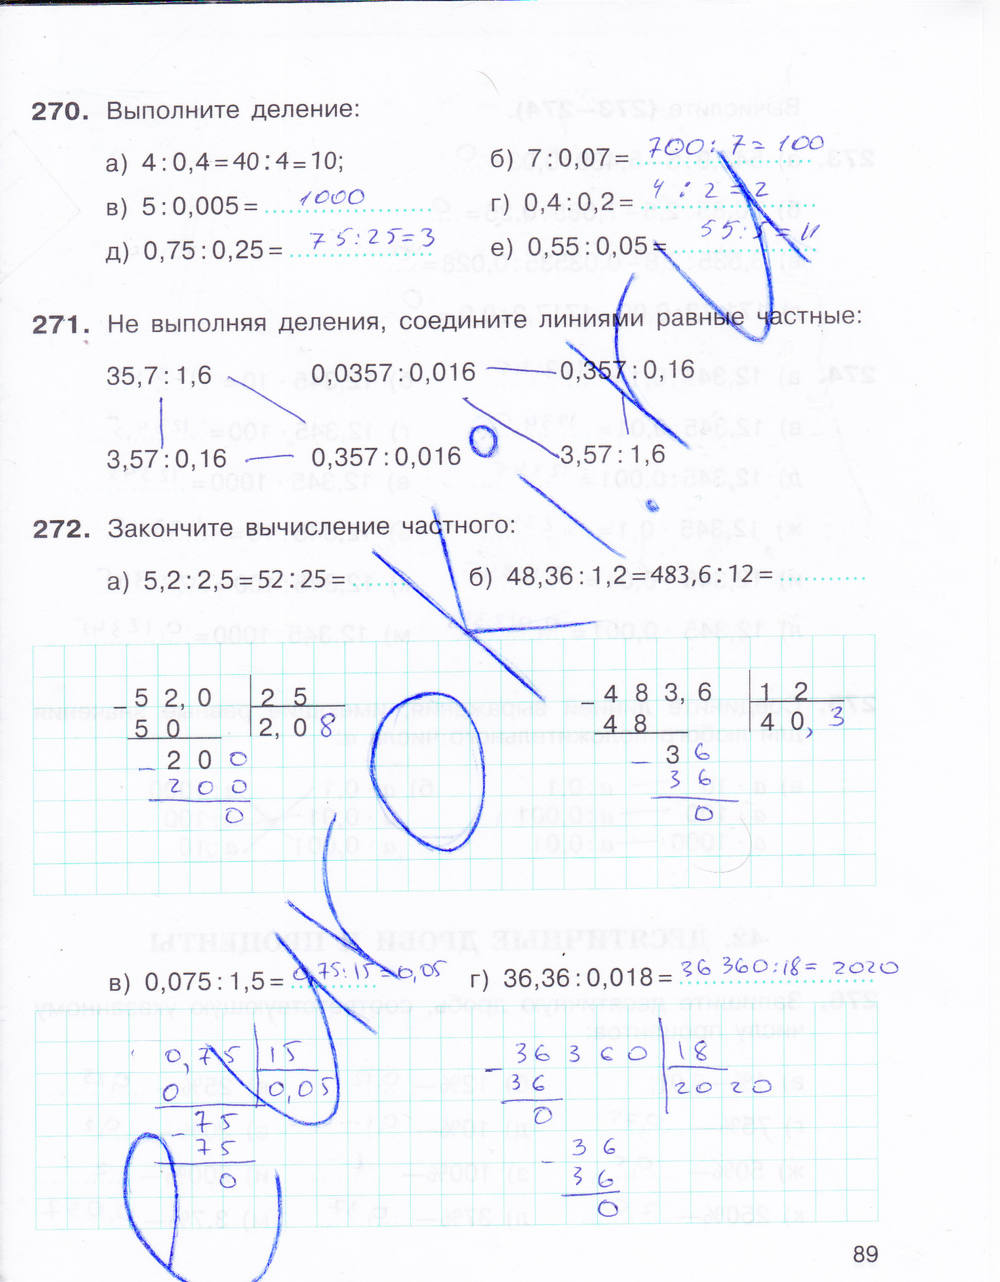 270. Выполните деление:
а) 4 : 0,4 = 40 : 4 = 10; б) 7 : 0,07 = 700 : 7 = 100
в) 5 : 0,005 = 1000 г) 0,4 : 0,2 = 4 : 2 = 2
д) 0,75 : 0,25 = 75 : 25 = 3 е) 0,55 : 0,05 = 55 : 5 = 11
271. Не выполняя деления, соедините линиями равные частные:
35,7 : 1,6 0,0357 : 0,016 0,357 : 0,16
3,57 : 0,16 0,357 : 0,016 3,57 : 1,6
272. Закончите вычисление частного:
а) 5,2 : 2,5 = 52 : 25 = б) 48,36 : 1,2 = 483,6 : 12 =
– 52,0 25 483,6 12
50 2,08 48 40,3
– 200 – 36
200 36
0 0
в) 0,075 : 1,5 = 0,75 : 15 = 0,05 г) 36,36 : 0,018 = 36 360 : 18 = 2020
0,75 15 – 36360 18
0 0,05 36 2020
– 75 0
75 – 36
0 36
0
89